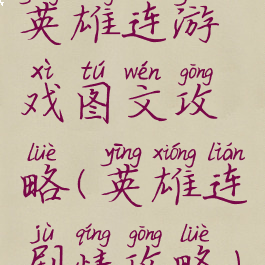 英雄连游
xì tú wén gōng
戏图文攻
lüè yīng xióng lián
略(英雄连
jù qíng gōng lüè
剧情攻略)